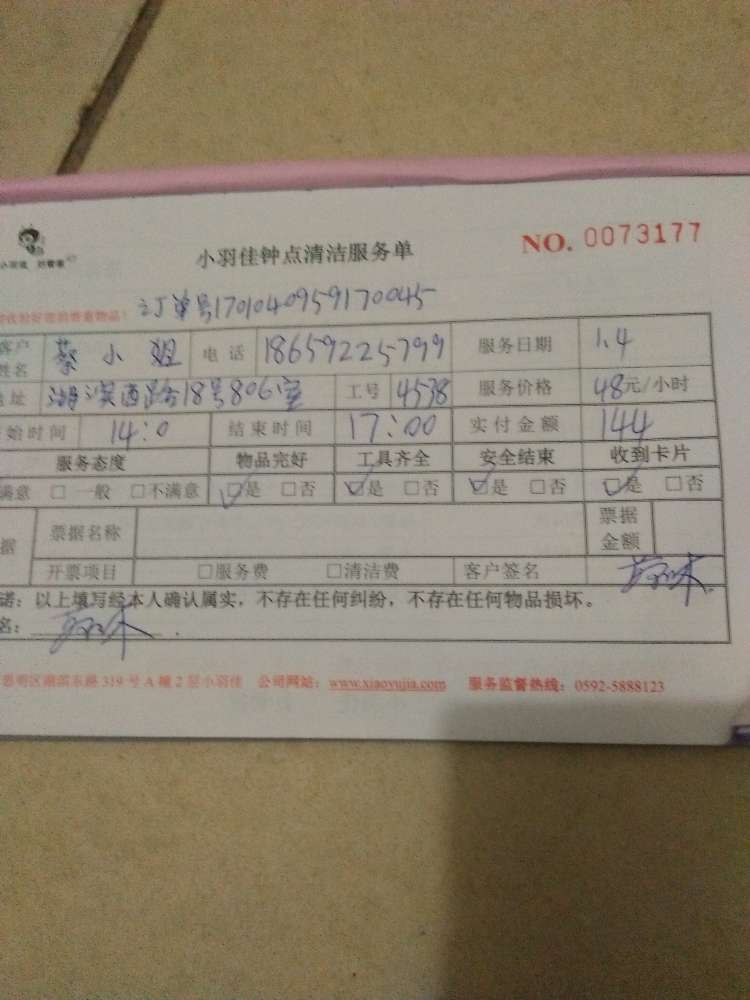 小羽佳钟点清洁服务单 NO. 0073177
订单号1701040959170045
客户姓名 蔡小姐 电话 18659225799 服务日期 1.4
址 湖滨西路18号806室 工号 4538 服务价格 48元/小时
始时间 14:0 结束时间 17:00 实付金额 144
服务态度 物品完好 工具齐全 安全结束 收到卡片
满意 □ 一般 □不满意 ☑是 □否 ☑是 □否 ☑是 □否 ☑是 □否
据 票据名称 票据金额
开票项目 □服务费 □清洁费 客户签名
诺：以上填写经本人确认属实，不存在任何纠纷，不存在任何物品损坏。
名：
思明区湖滨东路319号A幢2层小羽佳 公司网站：www.xiaoyujia.com 服务监督热线：0592-5888123